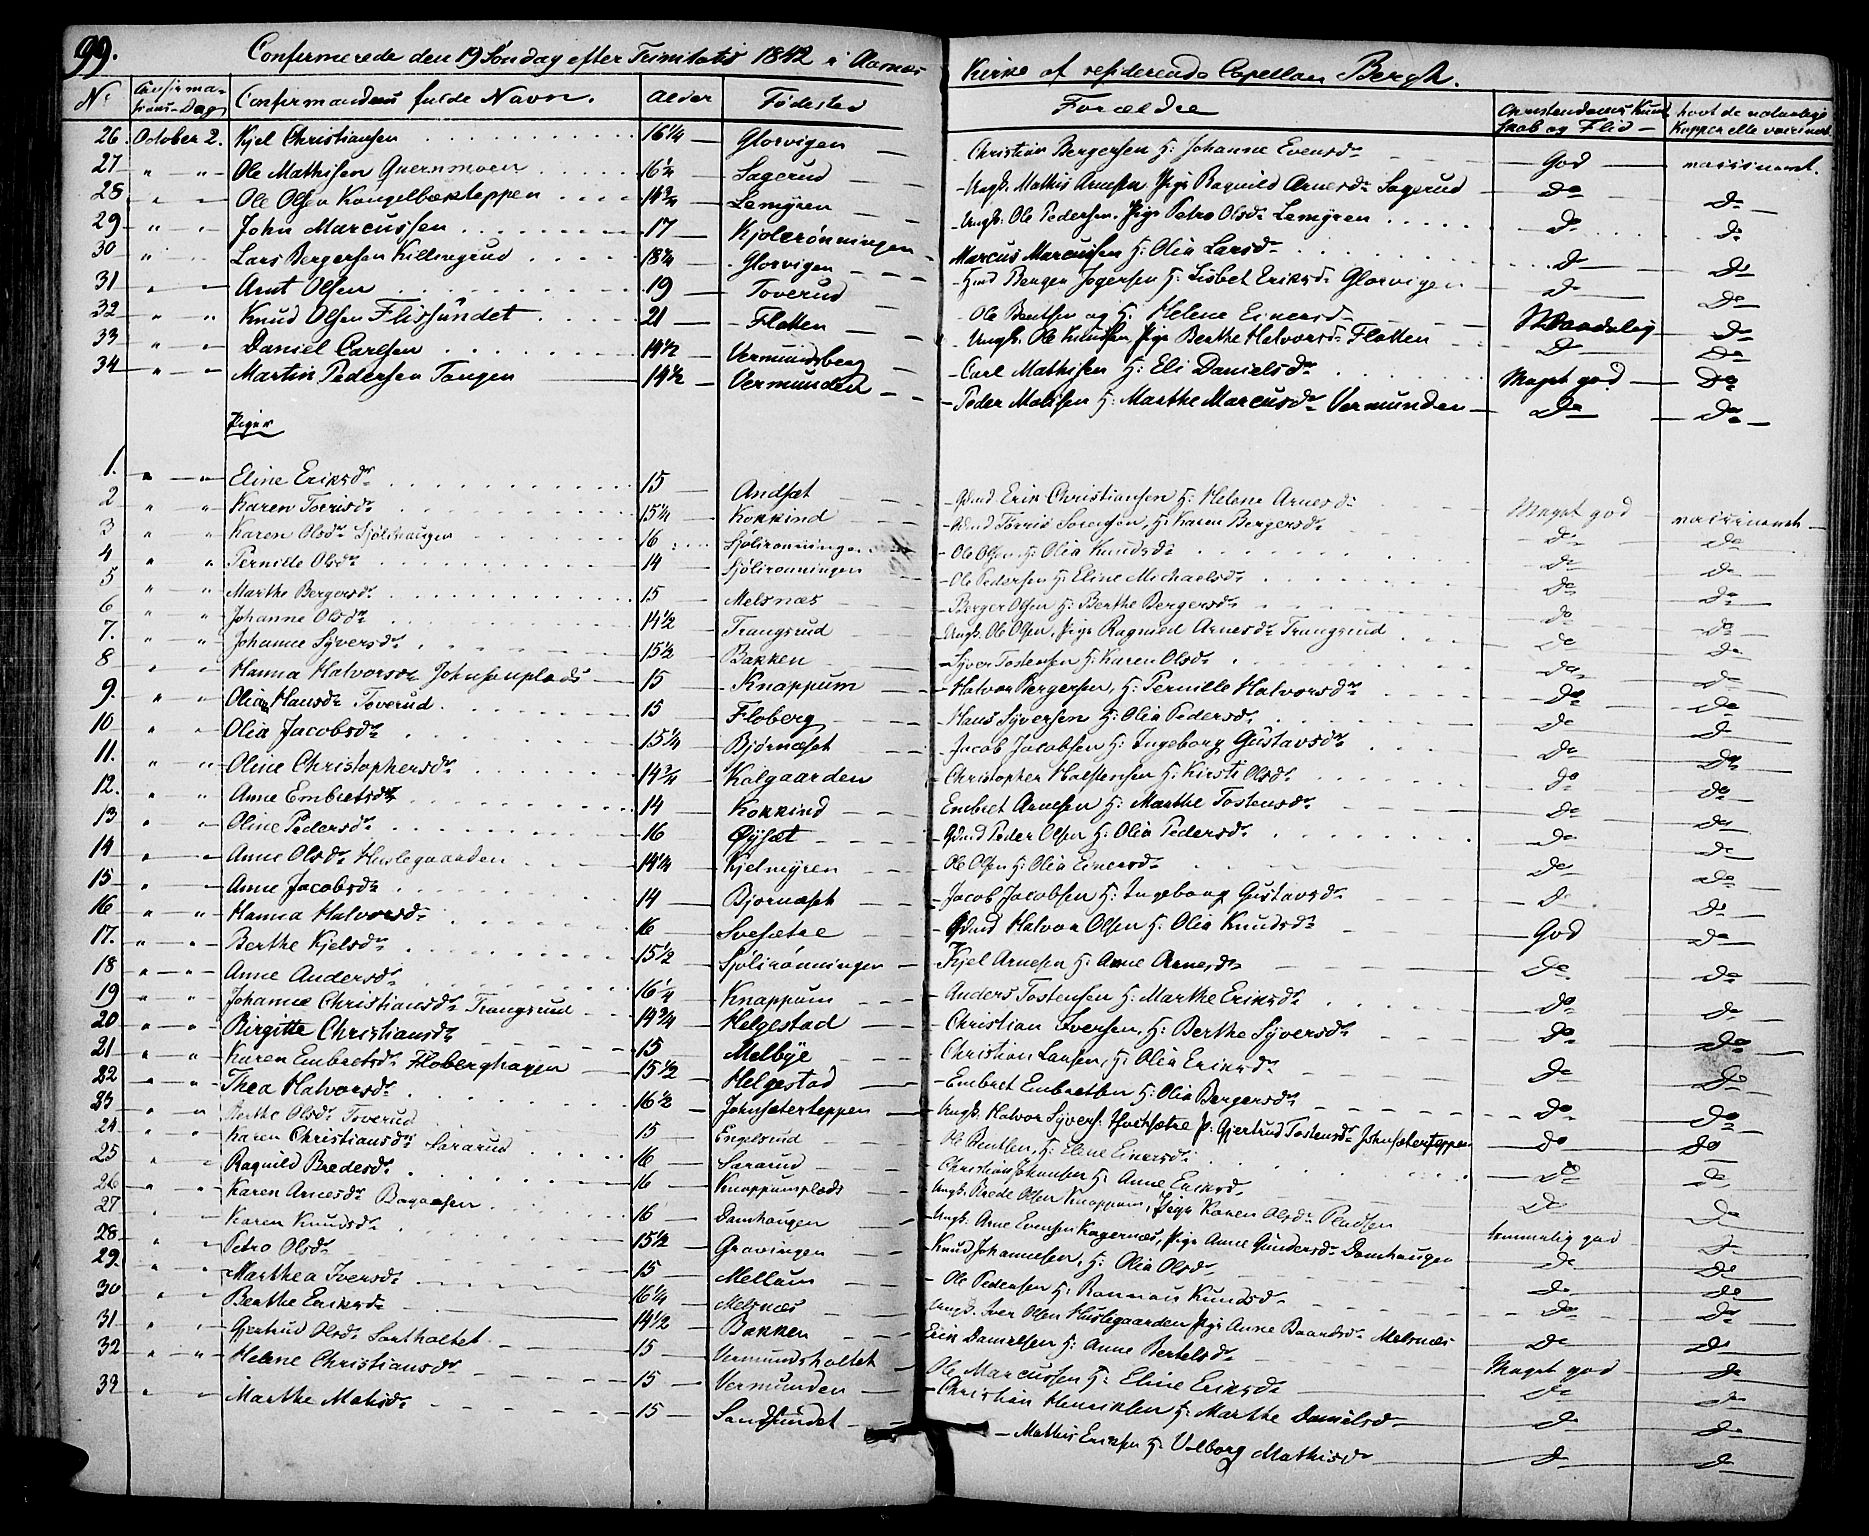 99.
Confirmerede den 19 Søndag efter Trinitatis 1842 i Aasnes Kirke af residerende Capellan Bergh.
No Confirmations-Dag Confirmandens fulde Navn. Alder Fødested Forældre Christendoms Kundskab og Flid havt de naturlige Kopper elle vaccineret
26. October 2. Kjel Christiansen 16 1/4 Glorvigen Christian Bergersen H: Johanne Evensdr God vaccineret.
27 " " Ole Mathisen Quernmoen 16 1/4 Sagerud Ungk. Mathis Arnesen Pige Ragnild Arnesdr Sagerud Do Do
28 " " Ole Olsen Kongelbæksteppen 14 3/4 Lemyren Ungk: Ole Pedersen, Pige Petro Olsdr Lemyren Do Do
29 " " John Marcussen 17 Kjolerønningen Marcus Marcussen H: Olia Larsdr Do Do
30 " " Lars Bergersen Killingrud 18 3/4 Glorvigen Huusmd Berger Jogersen H: Lisbet Eriksdr Glorvigen Do Do
31 " " Arnt Olsen 19 Toverud Ole Bentsen og H: Helene Einersdr Maadelig Do
32 " " Knud Olsen Flissundet 21 Flatten Ungk. Ole Knudsen Pige Berthe Halvorsdr Flatten Do Do
33 " " Daniel Carlsen 14 1/2 Vermundsberg Carl Mathisen H: Eli Danielsdr Meget god Do
34 " " Martin Pedersen Tangen 14 1/2 Vermunden Peder Matisen H: Marthe Marcusdr Vermunden Do Do
Piger
1. " " Eline Eriksdr 15 Andsæt Gdmd Erik Christiansen H: Helene Arnesdr Meget god vaccineret
2 " " Karen Torrisdr 15 1/4 Kokkind Gdmd Torris Sorensen, H: Karen Bergersdr Do Do
3 " " Karen Olsdr Sjølihaugen 16 Sjølirønningen Ole Olsen, H: Olia Knudsdr Do Do
4 " " Pernille Olsdr 14 Sjølirønningen Ole Pedersen H: Eline Michaelsdr Do Do
5 " " Marthe Bergersdr 15 Melsnæs Berger Olsen H: Berthe Bergersdr Do Do
6 " " Johanne Olsdr 14 1/2 Trangsrud Ungk. Ole Olsen, Pige Ragnild Arnesdr Trangsrud Do Do
7. " " Johanne Syversdr 15 1/2 Bakken Syver Tostensen H: Karen Olsdr Do Do
8 " " Hanna Halvorsdr Johnsenplads 15 Knappum Halvor Bergersen, H: Pernille Halvorsdr Do Do
9. " " Olia Hansdr Toverud 15 Floberg Hans Syversen H: Olia Pedersdr Do Do
10 " " Olia Jacobsdr 15 1/4 Bjørnæset Jacob Jacobsen H: Ingeborg Gustavsdr Do Do
11. " " Oline Christophersdr 14 3/4 Kalgaarden Christopher Halstensen H: Kirsti Olsdr Do Do
12. " " Anne Embretsdr 14 Kokkind Embret Arnesen H: Marthe Tostensdr Do Do
13 " " Oline Pedersdr 16 Øysæt Gdmd Peder Olsen H: Olia Pedersdr Do Do
14 " " Anne Olsdr Huslegaarden 14 1/4 Kjelmyren Ole Olsen H: Olia Einersdr Do Do
15 " " Anne Jacobsdr 14 Bjørnæset Jacob Jacobsen H: Ingeborg Gustavsdr Do Do
16 " " Hanna Halvorsdr 16 Svesætre Gdmd Halvor Olsen H: Olia Knudsdr God Do
17. " " Berthe Kjelsdr 15 1/2 Sjølirønningen Kjel Arnesen H: Anne Arnesdr Do Do
18 " " Anne Andersdr 16 1/4 Knappum Anders Tostensen H: Marthe Eriksdr Do Do
19 " " Johanne Christiansdr Trangsrud 14 3/4 Helgestad Christian Iversen, H: Berthe Syversdr Do Do
20 " " Birgitte Christiansdr 15 Melbye Christian Larsen, H: Olia Eriksdr Do Do
21 " " Karen Embretsdr Floberghagen 15 1/2 Helgestad Embret Embretsen H: Olia Bergersdr Do Do
22 " " Thea Halvorsdr 16 1/2 Johnsæterteppen Ungk. Halvor Syvers. Hvitsætre P: Gjertrud Tostensdr Johnsæterteppen Do Do
23 " " Berthe Olsdr Toverud 15 Engelsrud Ole Bentsen, H: Eline Einersdr Do Do
24 " " Karen Christiansdr Sararud 16 Sararud Christian Johansen H: Anne Eriksdr Do Do
25 " " Ragnild Bredesdr 16 Knappumplads Ungk. Brede Olsen Knappum, Pige Karen Olsdr Pladsen Do Do
26 " " Karen Arnesdr 16 Damhaugen Ungk. Arne Evensen Kagernæs, Pige Anne Gundersdr Damhaugen temmelig god Do
27 " " Karen Knudsdr 15 1/2 Gravingen Knud Johannesen, H: Olia Olsdr Do Do
28 " " Petro Olsdr 15 Mellum Ole Pedersen H: Rannau Knudsdr Do Do
29. " " Marthea Iversdr 16 1/4 Melsnæs Ungk. Iver Olsen Huslegaarden Pige Anne Baardsdr Melsnæs Do Do
30 " " Berthe Eriksdr 14 1/2 Bakken Erik Danielsen H: Anne Bertelsdr Do Do
31 " " Gjertrud Olsdr Sortholtet 15 Vermundsholtet Ole Marcussen H: Eline Eriksdr Meget god Do
32 " " Helene Christiansdr 15 Vermunden Christian Henriksen H: Marthe Danielsdr Do Do
33 " " Marthe Matisdr 15 Sandsundet Mathis Eriksen H: Valborg Mathisdr Do Do